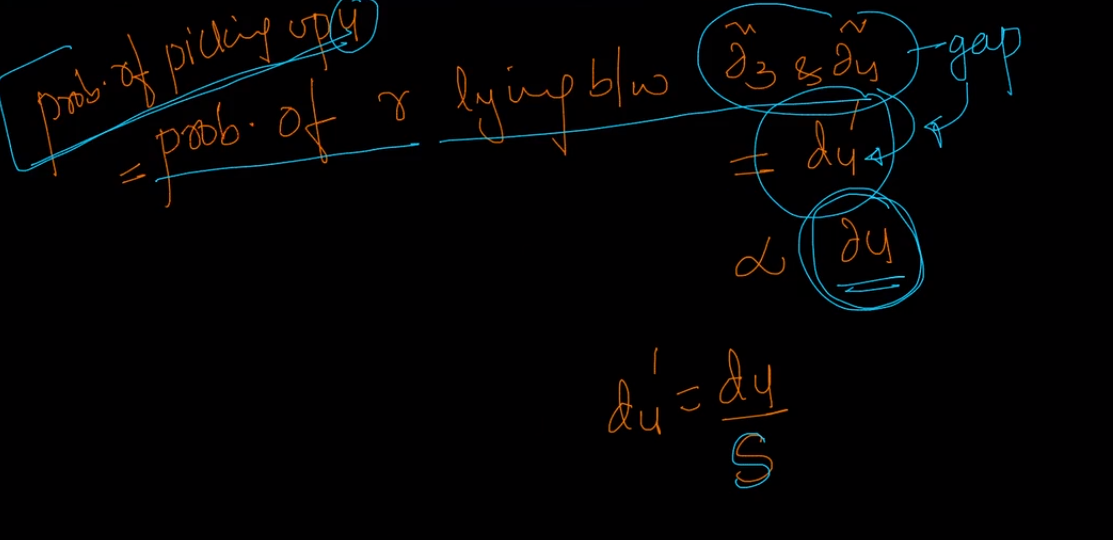 prob. of picking up 4
= prob. of r lying b/w d̃3 & d̃4 - gap
= d4'
∝ d4
d4' = d4/S